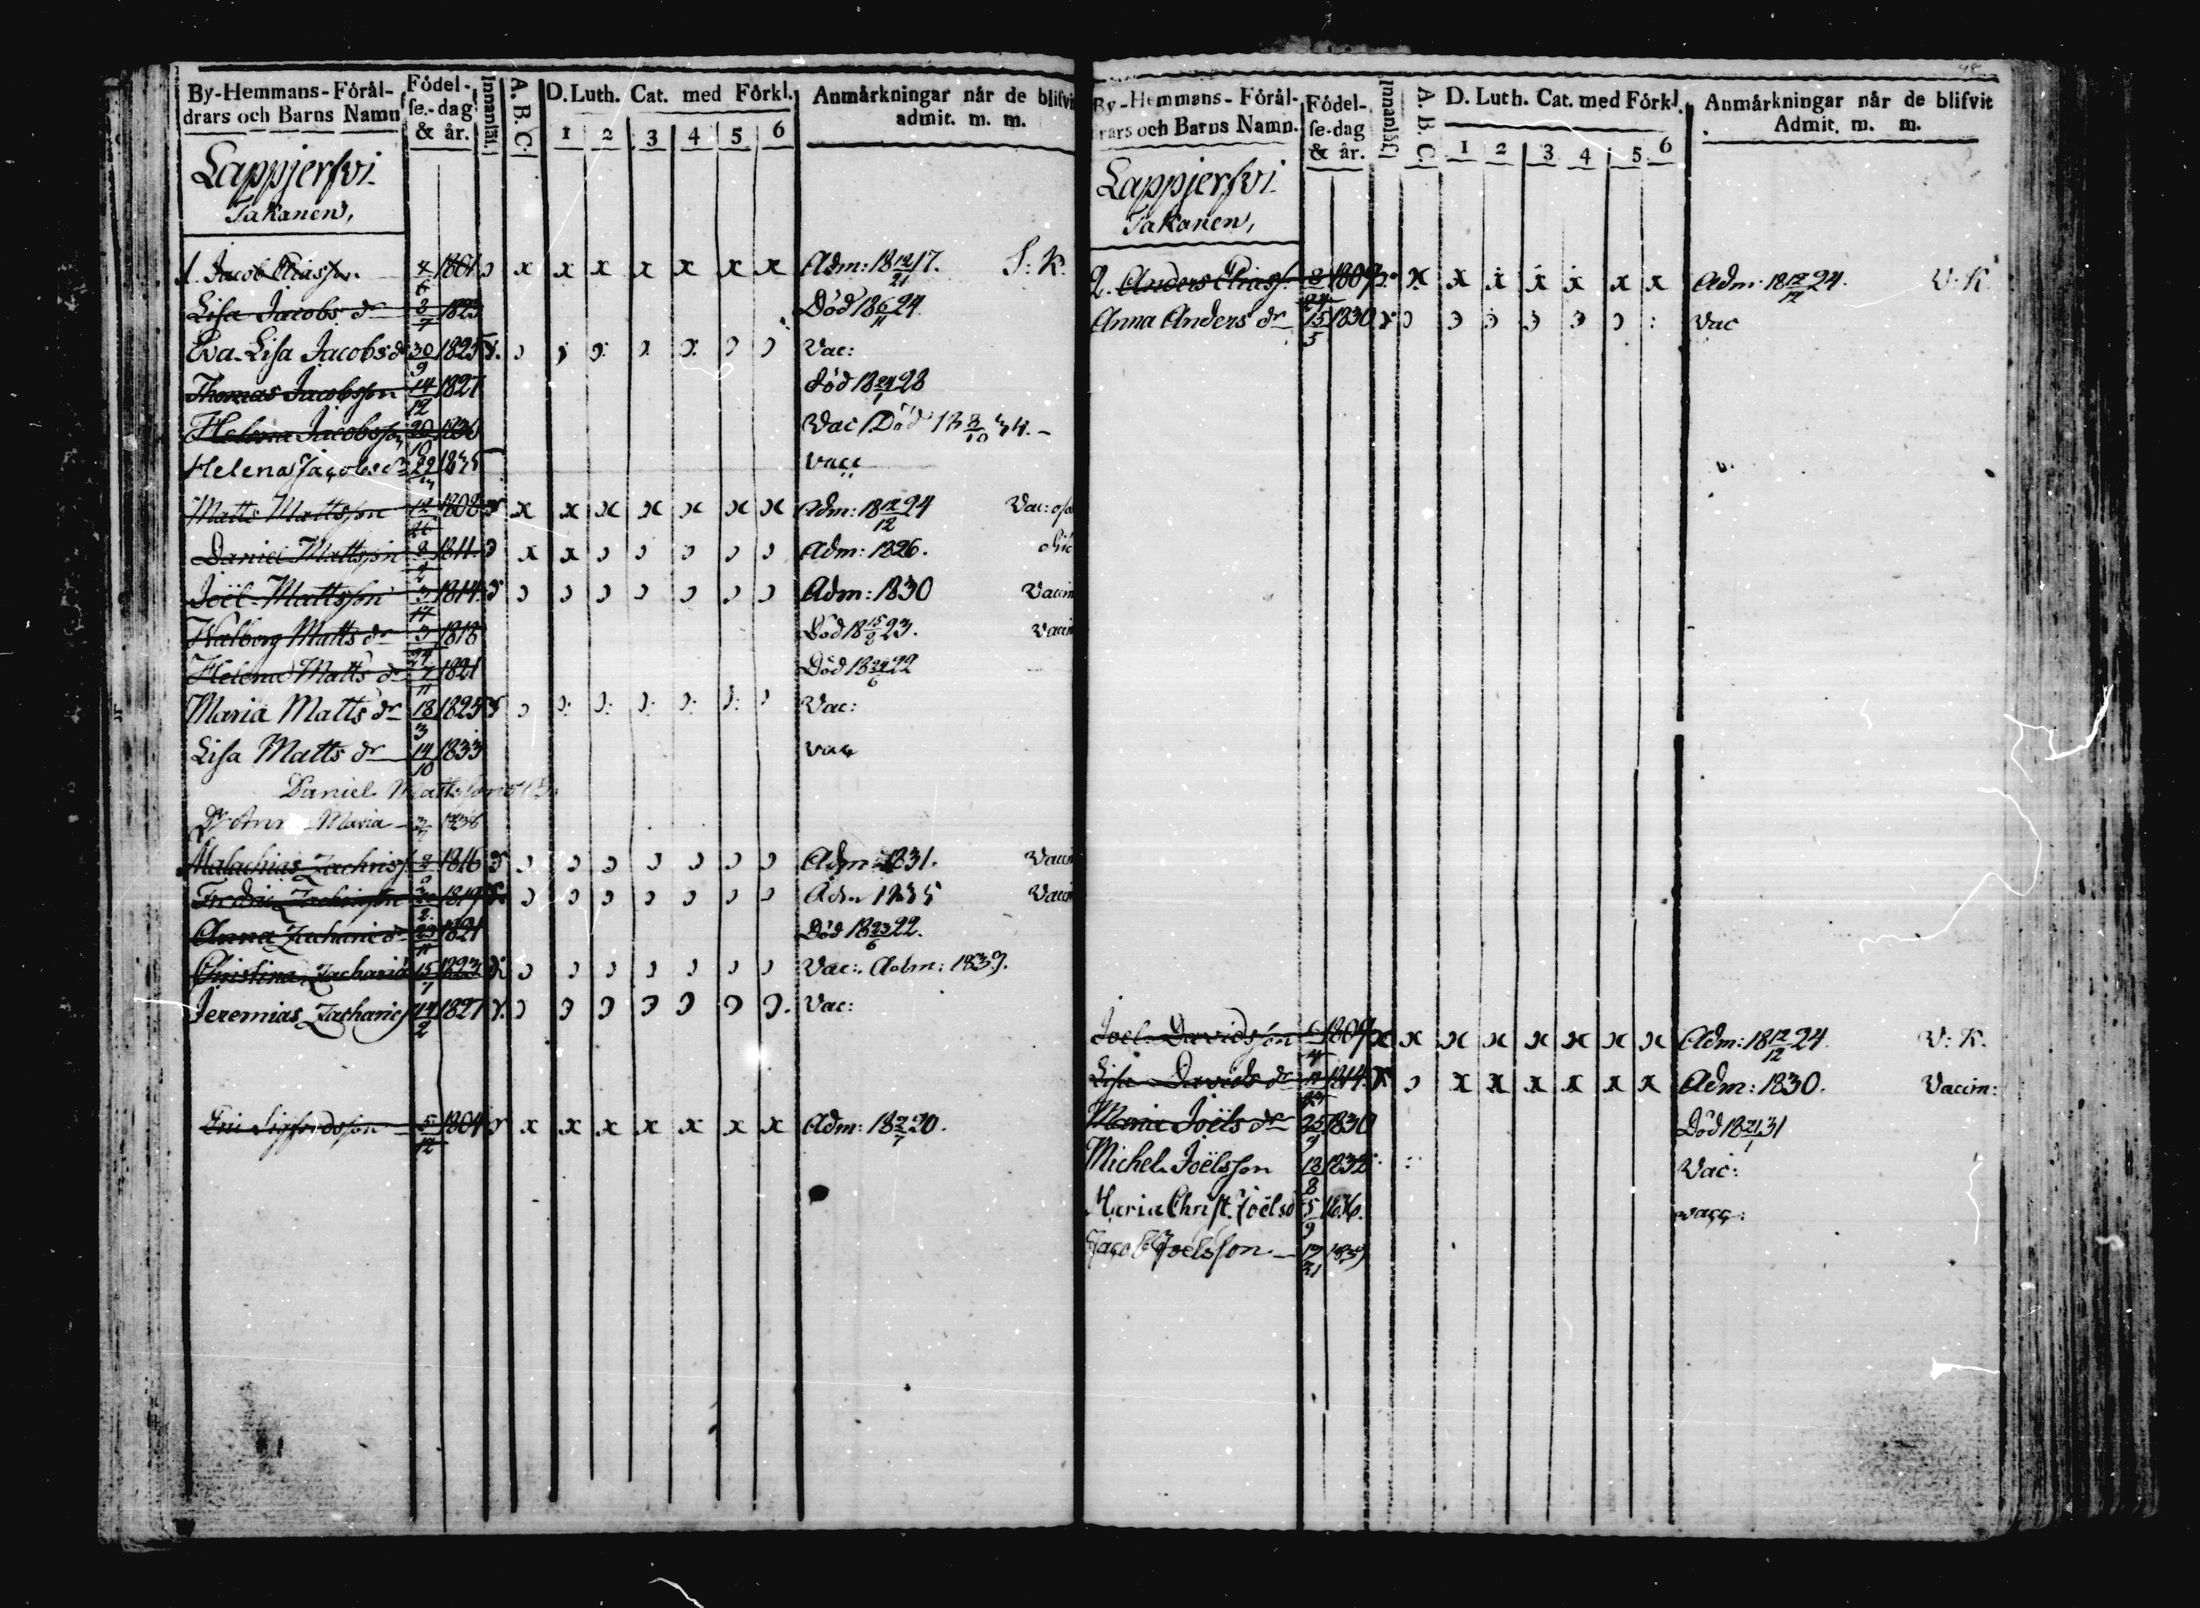 By-Hemmans-Förål-
drars och Barns Namn
Födel-
se-dag
& år.
Innanläs.
A. B. C.
D. Luth. Cat. med Förkl.
1 2 3 4 5 6
Anmärkningar når de blifvit
admit. m. m.
Lappjerfvi
Takanen,
1. Jacob Eliasson 1801 x x x x x x x Adm: 18 12/21 17. S: K.
Lisa Jacobs dr 3/7 1823 Död 18 6/11 24.
Eva Lisa Jacobs dr 30/9 1825 Vac:
Thomas Jacobsson 14/12 1827 död 18 24/1 28
Jacobsson 20/10 1830 Vac Död 18 8/10 34.
Helena Jacobs dr 1835 vacc
Matts Mattsson 12/26 1808 x x x x x x x Adm: 18 12/12 24 Vac:
Daniel Mattsson 1811 x x Adm: 1826.
Joël Mattsson 3/17 1814 Adm: 1830 Vaccin
Walborg Matts dr 1818 Död 18 15/8 23. Vaccin
Helena Matts dr 7/11 1821 Död 18 24/6 22
Maria Matts dr 18/3 1825 Vac:
Lisa Matts dr 14/10 1833 vac
Daniel Mattssons
Dr Anna Maria
Malachias Zachriss 1816 Adm 1831. Vaccin
Fredric 1819 Adm 1835 Vaccin
Anna Zacharie dr 23/11 1821 Död 18 23/6 22.
Christina Zacharie 15/7 1823 Vac: Adm: 1839.
Jeremias Zacharies 14/2 1827 Vac:
Eric Sigfredsson 5/12 1804 x x x x x x x Adm: 18 2/7 20.
By-Hemmans-Förål-
drars och Barns Namn.
Födel-
se-dag
& år.
Innanläs.
A. B. C.
D. Luth. Cat. med Förkl.
1 2 3 4 5 6
Anmärkningar når de blifvit
Admit. m. m.
Lappjerfvi
Takanen,
2. Anders Eliass. 1809 x x x x x x x Adm: 18 12/12 24. V: K.
Anna Anders dr 15/5 1830 Vac
Joel Davidsson 6/4 1809 x x x x x x x x Adm: 18 12/12 24. V: K.
Lisa Davids dr 1814 x x x x x x Adm: 1830. Vaccin:
Maria Joëls dr 25/9 1830 Död 18 21/1 31
Michel Joëlsson 13/8 1832 Vac:
Maria Christ. Joëlsd 5/9 1836. vacc:
Jacob Joelsson 1839